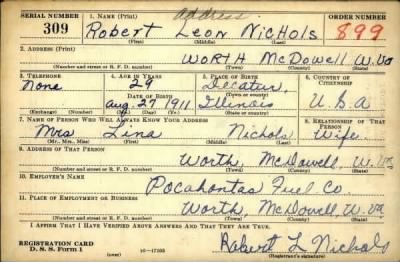 SERIAL NUMBER 1. NAME (Print) address ORDER NUMBER
309 Robert Leon Nichols 899
(First) (Middle) (Last)
2. ADDRESS (Print)
WORTH McDowell W.Va
(Number and street or R. F. D. number) (Town) (County) (State)
3. TELEPHONE 4. AGE IN YEARS 5. PLACE OF BIRTH 6. COUNTRY OF CITIZENSHIP
None 29 Decatur,
DATE OF BIRTH (Town or county)
Aug. 27 1911 Illinois U.S.A
(Exchange) (Number) (Mo.) (Day) (Yr.) (State or country)
7. NAME OF PERSON WHO WILL ALWAYS KNOW YOUR ADDRESS 8. RELATIONSHIP OF THAT PERSON
Mrs Lina Nichols Wife
(Mr., Mrs., Miss) (First) (Middle) (Last)
9. ADDRESS OF THAT PERSON
Worth, McDowell, W.Va
(Number and street or R. F. D. number) (Town) (County) (State)
10. EMPLOYER'S NAME
Pocahontas Fuel Co
11. PLACE OF EMPLOYMENT OR BUSINESS
Worth, McDowell, W.Va.
(Number and street or R. F. D. number) (Town) (County) (State)
I AFFIRM THAT I HAVE VERIFIED ABOVE ANSWERS AND THAT THEY ARE TRUE.
REGISTRATION CARD Robert L Nichols
D. S. S. Form 1 (over) 16—17105 (Registrant's signature)